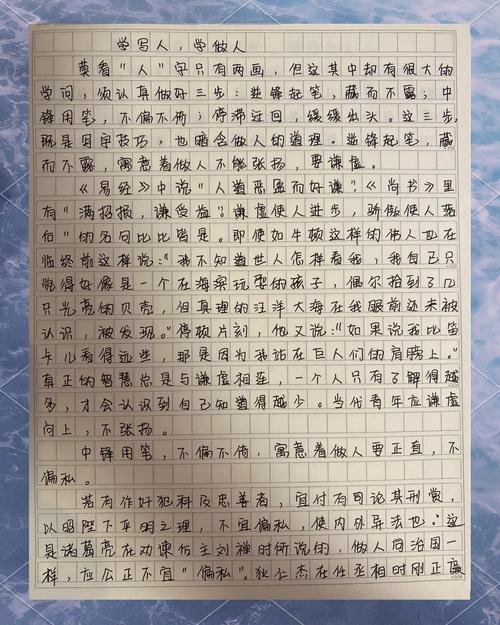 学写人，学做人
莫看“人”字只有两画，但这其中却有很大的
学问，须认真做好三步：逆锋起笔，藏而不露；中
锋用笔，不偏不倚；停滞迂回，缓缓出头。这三步，
既是写字技巧，也暗含做人的道理。逆锋起笔，藏
而不露，寓意着做人不能张扬，要谦虚。
《易经》中说“人道恶盈而好谦”《尚书》里
有“满招损，谦受益”谦虚使人进步，骄傲使人落
后”的名句比比皆是。即使如牛顿这样的伟人也在
临终前这样说：“我不知道世人怎样看我，我自己只
觉得好像是一个在海滨玩耍的孩子，偶尔拾到了几
只光亮的贝壳，但真理的汪洋大海在我眼前还未被
认识，被发现。”停顿片刻，他又说：“如果说我比笛
卡儿看得远些，那是因为我站在巨人们的肩膀上。”
真正的智慧总是与谦虚相连，一个人只有了解得越
多，才会认识到自己知道得越少。当代青年应谦虚
向上，不张扬。
中锋用笔，不偏不倚，寓意着做人要正直，不
偏私。
若有作奸犯科及忠善者，宜付有司论其刑赏，
以昭陛下平明之理，不宜偏私，使内外异法也：这
是诸葛亮在劝谏后主刘禅时所说的，做人同治国一
样，应公正不宜“偏私”。狄仁杰在任丞相时刚正廉